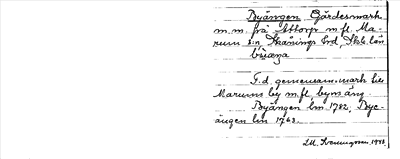 Byängen Gärdesmark
m.m. frå Attorp m.fl. Ma-
rum sn Skånings hd, Skbl. län
byäŋa
F.d. gemensam mark till
Marums by m.fl. bymsäng.
Byängen lm 1782, Bye-
ängen lm 1763.
1986